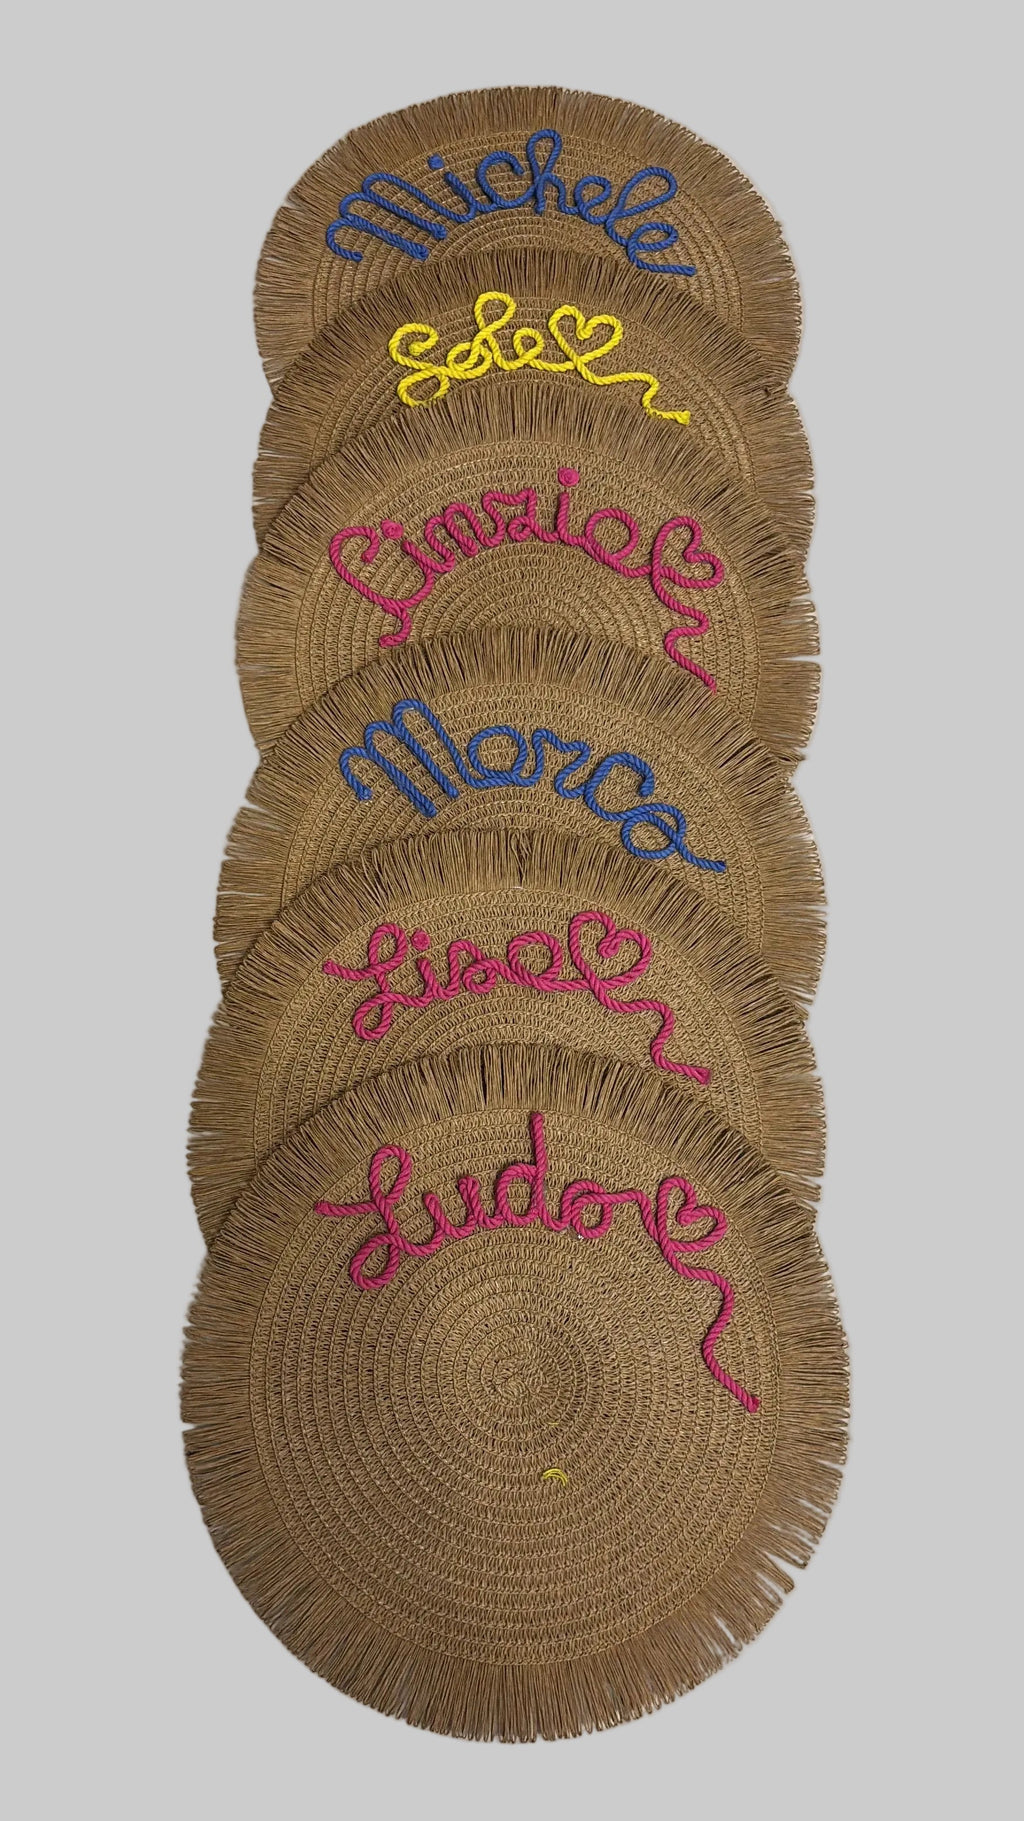 Michele
Sole
Cinzia
Marco
Lisa
Ludo